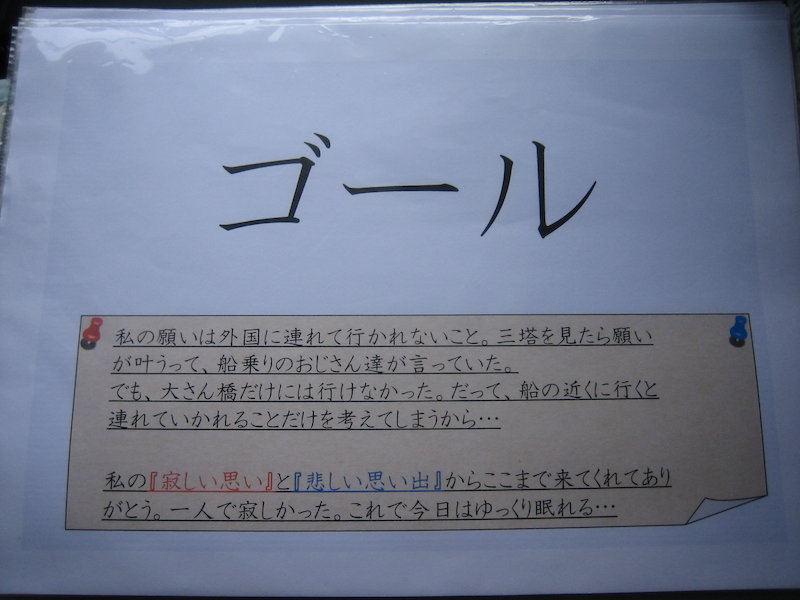 ゴール
私の願いは外国に連れて行かれないこと。三塔を見たら願い
が叶うって、船乗りのおじさん達が言っていた。
でも、大さん橋だけには行けなかった。だって、船の近くに行くと
連れていかれることだけを考えてしまうから…
私の『寂しい思い』と『悲しい思い出』からここまで来てくれてあり
がとう。一人で寂しかった。これで今日はゆっくり眠れる…